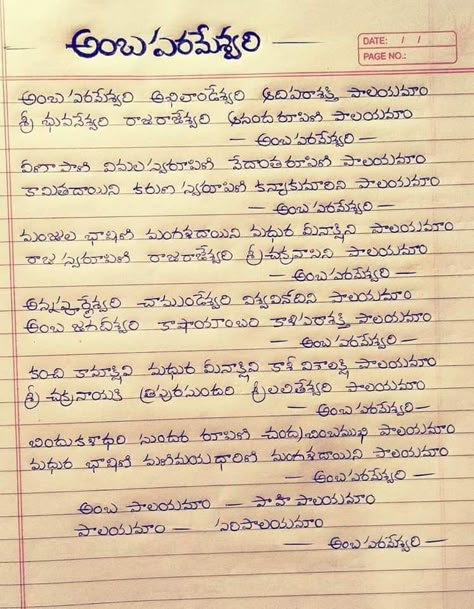 అంబ పరమేశ్వరి
DATE: / /
PAGE NO.:
అంబ పరమేశ్వరి అఖిలాండేశ్వరి ఆదిపరాశక్తి పాలయమాం
శ్రీ భువనేశ్వరి రాజరాజేశ్వరి ఆనంద రూపిణి పాలయమాం
— అంబ పరమేశ్వరి —
వీణా పాణి విమల స్వరూపిణి వేదాంత రూపిణి పాలయమాం
కామితదాయిని కరుణ స్వరూపిణి కన్యాకుమారిని పాలయమాం
— అంబ పరమేశ్వరి —
మంజుల భాషిణి మంగళదాయిని మధుర మీనాక్షిని పాలయమాం
రాజ స్వరూపిణి రాజరాజేశ్వరి శ్రీచక్రవాసిని పాలయమాం
— అంబ పరమేశ్వరి —
అన్నపూర్ణేశ్వరి చాముండేశ్వరి విశ్వవినోదిని పాలయమాం
అంబ జగదీశ్వరి కాషాయాంబరి కాళిపరాశక్తి పాలయమాం
— అంబ పరమేశ్వరి —
కంచి కామాక్షిని మధుర మీనాక్షిని కాశీ విశాలక్షి పాలయమాం
శ్రీ చక్రనాయకి త్రిపురసుందరి శ్రీలలితేశ్వరి పాలయమాం
— అంబ పరమేశ్వరి —
బిందుకళాధరి సుందర రూపిణి చంద్రబింబముఖి పాలయమాం
మధుర భాషిణి మణిమయధారిణి మంగళదాయిని పాలయమాం
— అంబ పరమేశ్వరి —
అంబ పాలయమాం — పాహి పాలయమాం
పాలయమాం — పరిపాలయమాం
— అంబ పరమేశ్వరి —